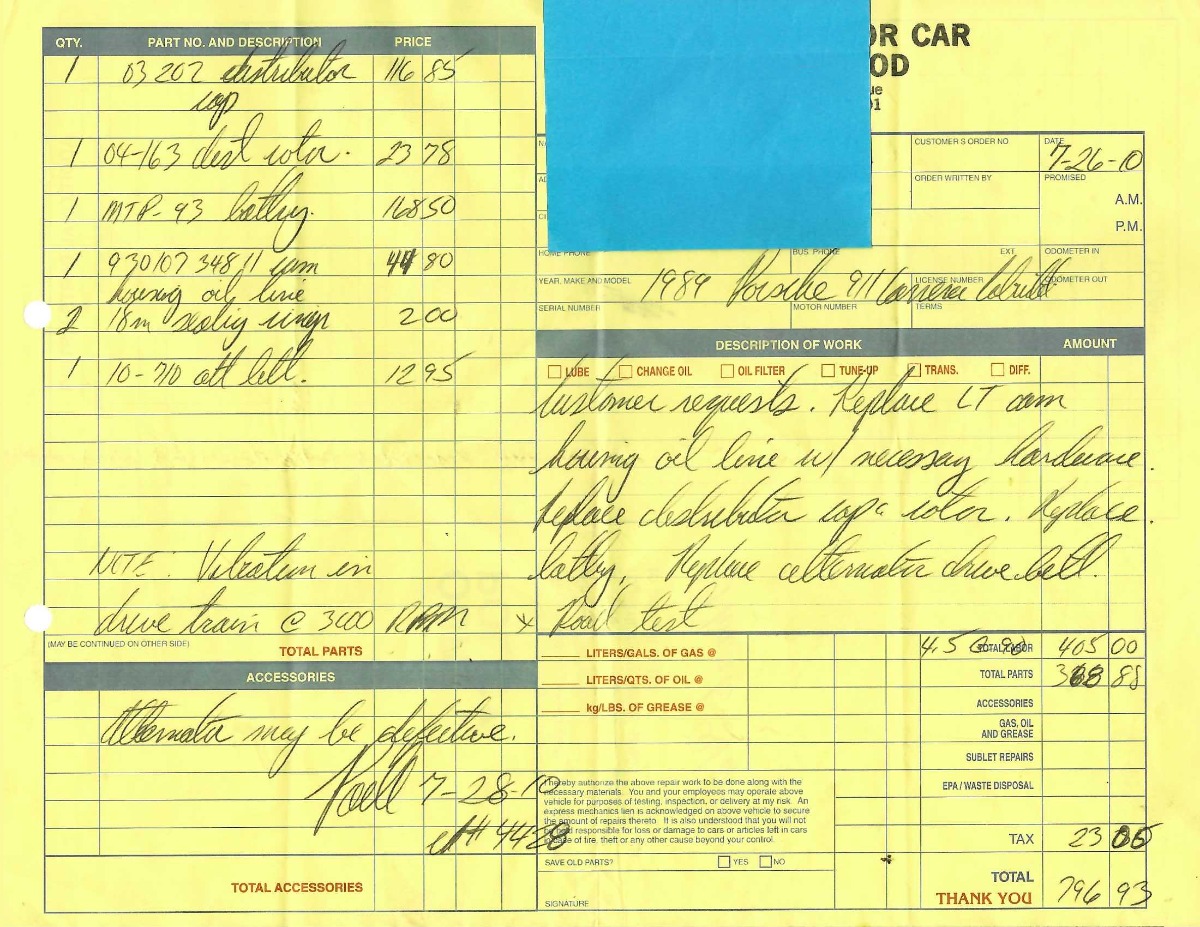 OR CAR
OD
ue
01
QTY. PART NO. AND DESCRIPTION PRICE
1 03 202 distributor 116 85
cap
1 04-163 dist rotor. 23 78
1 MTP-93 battry. 168 50
1 930 107 348 11 cam 44 80
housing oil line
2 18m sealing rings 2 00
1 10-710 alt belt. 12 95
NOTE: Vibration in
drive train @ 3000 RPM
(MAY BE CONTINUED ON OTHER SIDE) TOTAL PARTS
ACCESSORIES
Alternator may be defective.
Paid 7-28-10
ck# 4428
TOTAL ACCESSORIES
CUSTOMER'S ORDER NO DATE
7-26-10
ORDER WRITTEN BY PROMISED
A.M.
P.M.
HOME PHONE BUS. PHONE EXT. ODOMETER IN
YEAR, MAKE AND MODEL LICENSE NUMBER ODOMETER OUT
1989 Porsche 911 Carrera Cabriolet
SERIAL NUMBER MOTOR NUMBER TERMS
DESCRIPTION OF WORK AMOUNT
LUBE CHANGE OIL OIL FILTER TUNE-UP TRANS. DIFF.
Customer requests. Replace LT cam
housing oil line w/ necessary hardware.
Replace distributor cap & rotor. Replace
battry. Replace alternator drive belt.
* Road test
LITERS/GALS. OF GAS @ 4.5 @ 90 TOTAL LABOR 405 00
LITERS/QTS. OF OIL @ TOTAL PARTS 368 88
kg/LBS. OF GREASE @ ACCESSORIES
GAS, OIL
AND GREASE
SUBLET REPAIRS
I hereby authorize the above repair work to be done along with the
necessary materials. You and your employees may operate above
vehicle for purposes of testing, inspection, or delivery at my risk. An
express mechanics lien is acknowledged on above vehicle to secure
the amount of repairs thereto. It is also understood that you will not
be held responsible for loss or damage to cars or articles left in cars
in case of fire, theft or any other cause beyond your control.
EPA / WASTE DISPOSAL
TAX 23 05
SAVE OLD PARTS? YES NO
TOTAL 796 93
THANK YOU
SIGNATURE